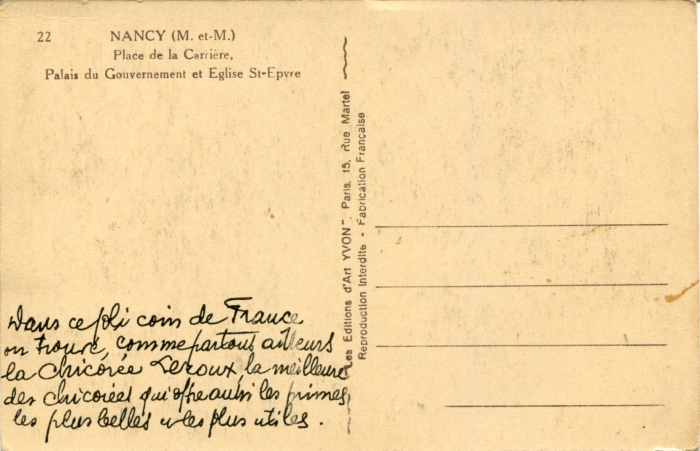 22 NANCY (M. et-M.)
Place de la Carrière,
Palais du Gouvernement et Eglise St-Epvre
Les Editions d'Art YVON", Paris, 15, Rue Martel
Reproduction Interdite - Fabrication Française
Dans ce joli coin de France
on trouve, comme partout ailleurs
la Chicorée Leroux, la meilleure
des chicorées qui offre aussi les primes
les plus belles et les plus utiles.